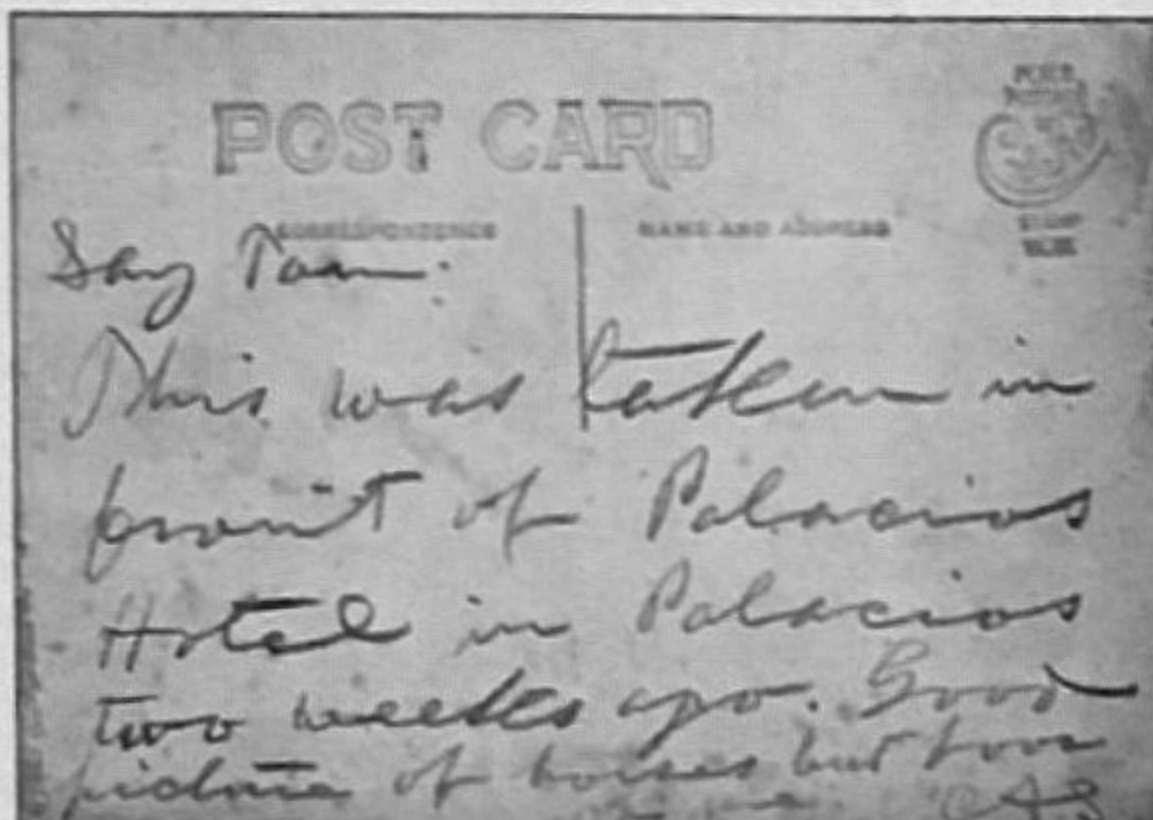 POST CARD
PLACE
STAMP
HERE
CORRESPONDENCE
NAME AND ADDRESS
Say Tom:
This was taken in
front of Palacios
Hotel in Palacios
two weeks ago. Good
picture of horses but poor
CAS